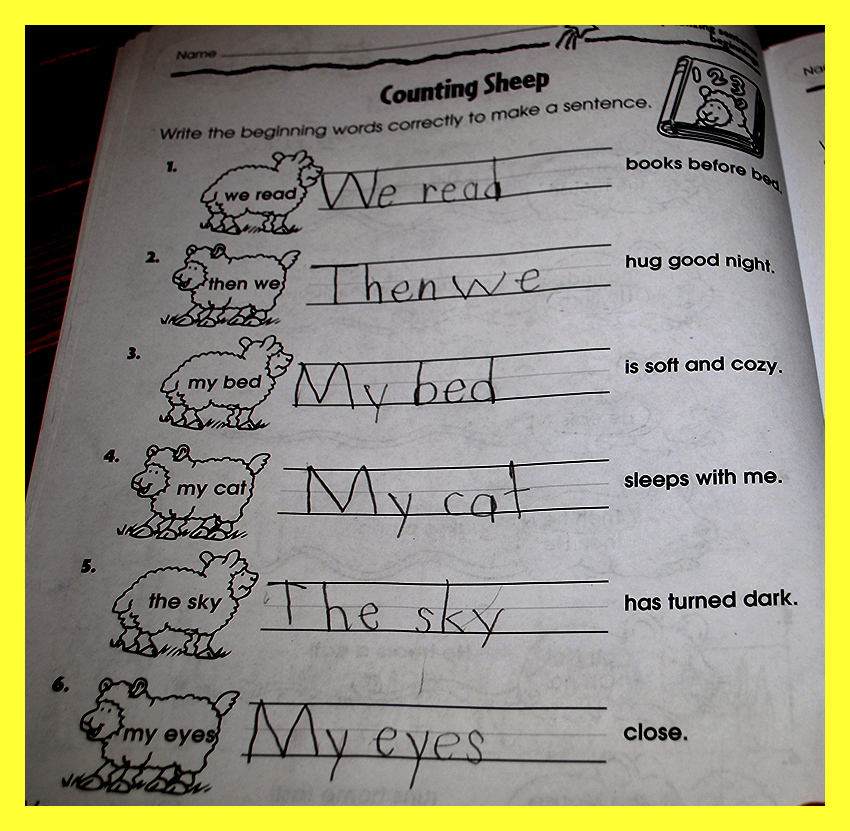 Name
Counting Sheep
1 2 3
Write the beginning words correctly to make a sentence.
1. we read We read books before bed.
2. then we Then we hug good night.
3. my bed My bed is soft and cozy.
4. my cat My cat sleeps with me.
5. the sky The sky has turned dark.
6. my eyes My eyes close.